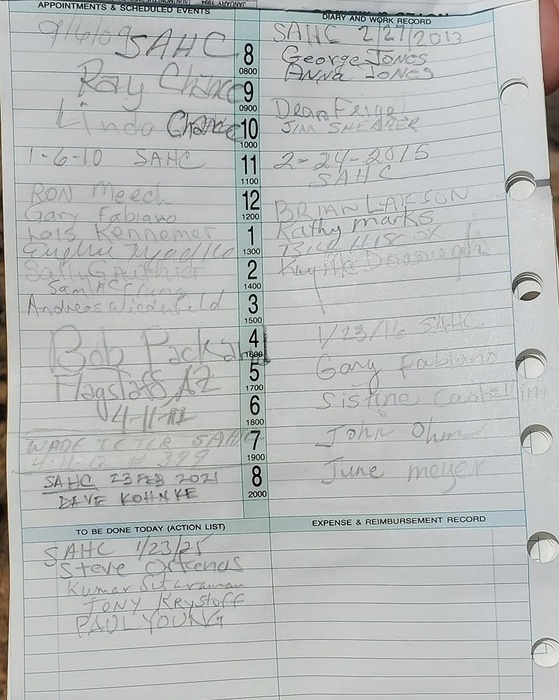 APPOINTMENTS & SCHEDULED EVENTS
9/6/09 SAHC
Ray Chance
Linda Chance
1-6-10 SAHC
RON Meech
Gary Fabiano
Lois Kennemer
Sally Gauthier
Sam
Andreas
Bob Packard
Flagstaff AZ
4-11-12
WADE TETER SAHC
4-11-12 # 399
SAHC 23 FEB 2021
DAVE KOHNKE
8
0800
9
0900
10
1000
11
1100
12
1200
1
1300
2
1400
3
1500
4
1600
5
1700
6
1800
7
1900
8
2000
DIARY AND WORK RECORD
SAHC 2/27/2013
George Jones
Anna Jones
Dean
JIM SHEARER
2-24-2015
SAHC
BRIAN LARSON
Kathy marks
1/23/16 SAHC
Gary Fabiano
Sistine Castellini
John Ohm
June meyer
TO BE DONE TODAY (ACTION LIST)
SAHC 1/23/25
Steve
Kumar
TONY Krystoff
PAUL YOUNG
EXPENSE & REIMBURSEMENT RECORD